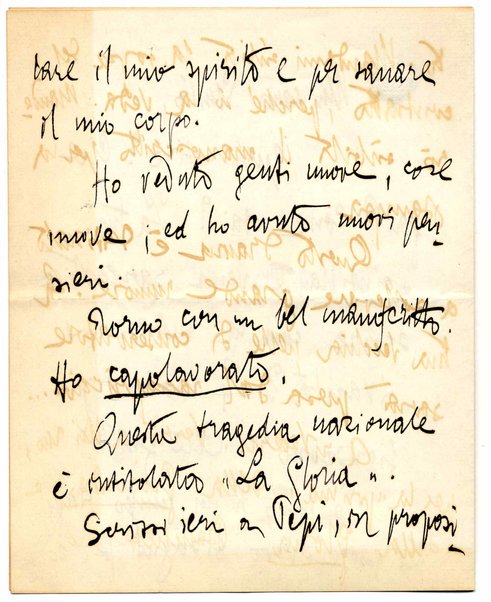 tare il mio spirito e per sanare
il mio corpo.
Ho veduto genti nuove, cose
nuove; ed ho avuto nuovi pen-
sieri.
Torno con un bel manoscritto.
Ho capolavorato.
Questa tragedia nazionale
è intitolata "La Gloria".
Scrissi ieri a Pepi, in proposi-